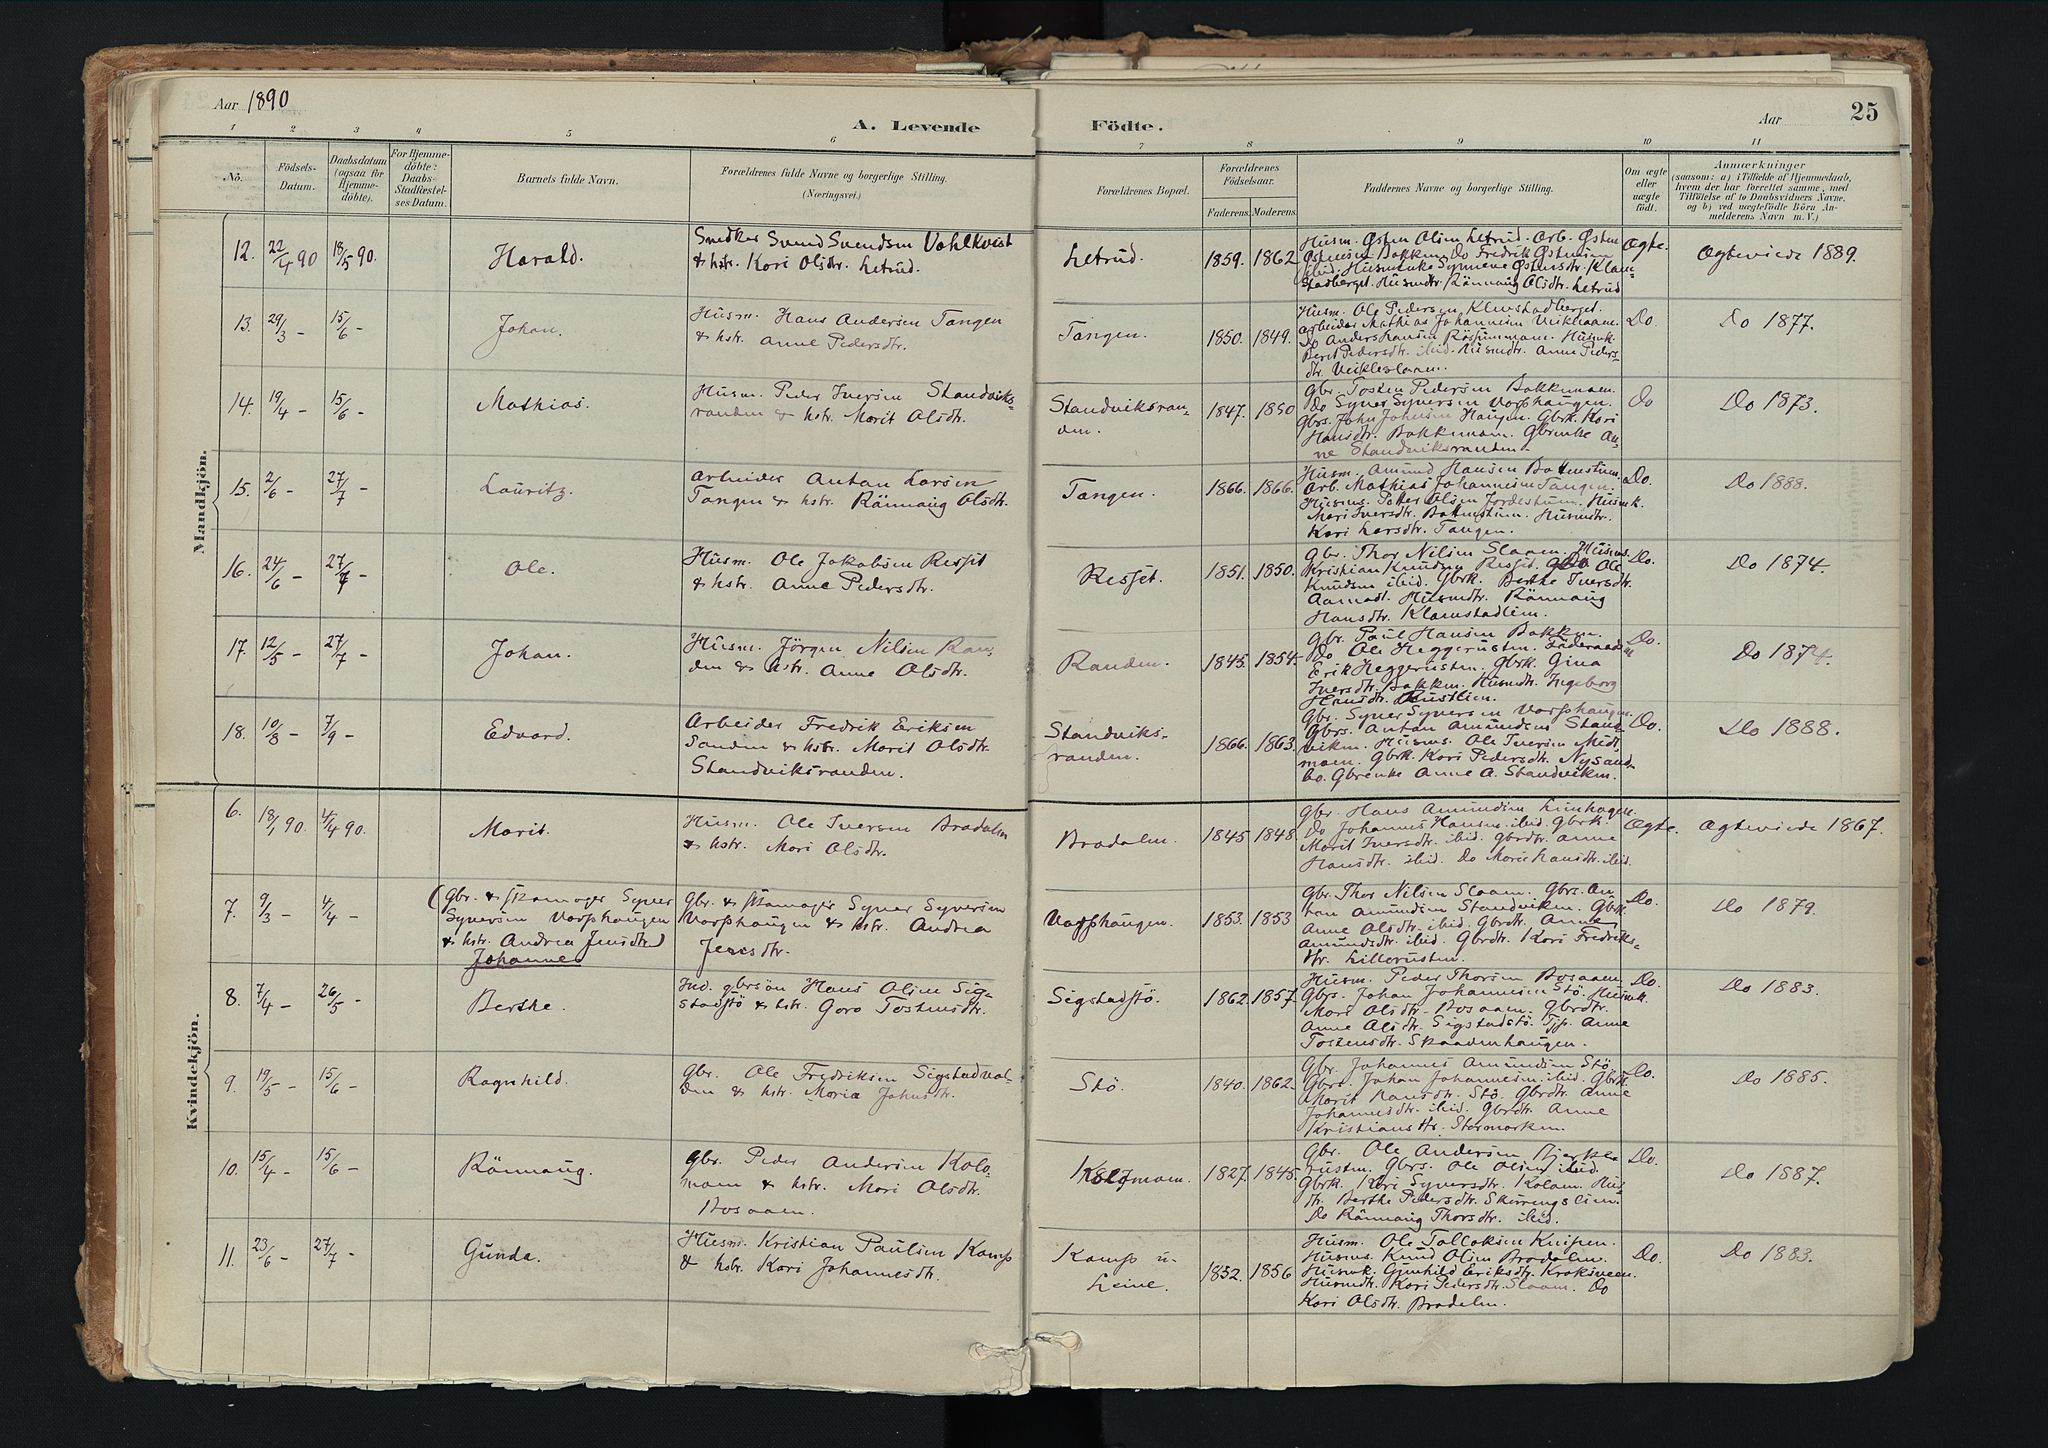 Aar 1890
A. Levende Födte.
Aar
25
1 2 3 4 5 6 7 8 9 10 11
No.
Födsels-
Datum.
Daabsdatum
(ogsaa for
Hjemme-
döbte).
For Hjemme-
döbte:
Daabs-
Stadfæstel-
ses Datum.
Barnets fulde Navn.
Forældrenes fulde Navne og borgerlige Stilling.
(Næringsvei.)
Forældrenes Bopæl.
Forældrenes
Födselsaar.
Faderens. Moderens.
Faddernes Navne og borgerlige Stilling.
Om ægte
eller
uægte
født.
Anmærkninger
(saasom: a) i Tilfælde af Hjemmedaab,
hvem der har forrettet samme, med
Tilföielse af to Daabsvidners Navne.
og b) ved uægtefödte Börn An-
melderens Navn m. V.)
Mandkjön.
12. 22/4 90 18/5 90. Harald.
Snedker Svend Svendsen Vahlkvist
& hstr. Kari Olsdtr. Letrud.
Letrud. 1859. 1862
Husm. Østen Olsen Letrud. Arb. Østen
Østensen Bakken. Do Fredrik Østensen
ibid. Husmenke Synneve Østensdtr. Klam-
stadberget. Husmdtr. Rönnaug Olsdtr. Letrud
Ægte. Ægteviede 1889.
13. 29/3 - 15/6 - Johan.
Husm. Hans Andersen Tangen
& hstr. Anne Pedersdtr.
Tangen. 1850. 1849.
Husm. Ole Pedersen Klemstadberget.
Arbeider Mathias Johannesen
Do Anders Hansen Husmk.
Berit Pedersdtr. ibid. Husmdtr. Anne Peders-
dtr.
Do. Do 1877.
14. 19/4 - 15/6 - Mathias.
Husm. Peder Iversen Standviks-
randen & hstr. Marit Olsdtr.
Standviksran-
den. 1847. 1850
Gbr. Tosten Pedersen Bakkemoen.
Do Syver Syversen Vorphaugen.
Gbrs. John Johnsen Haugen. Gbrk. Kari
Hansdtr. Bakkemoen. Gbrenke An-
ne Standviksranden.
Do Do 1873.
15. 2/6 - 27/7 - Lauritz.
Arbeider Anton Larsen
Tangen & hstr. Rönnaug Olsdtr.
Tangen. 1866. 1866.
Husm. Amund Hansen
Arb. Mathias Johannesen Tangen.
Husms. Peder Olsen Jordestuen. Husmk.
Mari Iversdtr. Husmdtr.
Kari Larsdtr. Tangen.
Do. Do 1888.
16. 24/6 - 27/7 - Ole.
Husm. Ole Jakobsen Resset
& hstr. Anne Pedersdtr.
Resset. 1851. 1850.
Gbr. Thor Nilsen Slaaen. Husms.
Kristian Knudsen Resset. Do Ole
Knudsen ibid. Gbrk. Berthe Iversdtr.
Aamodt. Husmdtr. Rönnaug
Hansdtr. Klamstadlien.
Do. Do 1874.
17. 12/5 - 27/7 - Johan.
Husm. Jörgen Nilsen Ran-
den & hstr. Anne Olsdtr.
Randen. 1845. 1854.
Gbr. Paul Hansen Bakken.
Do Ole Heggerusten. Föderaadsm
Erik Heggerusten. Gbrk. Gina
Iversdtr. Bakken. Husmdtr. Ingeborg
Hansdtr.
Do. Do 1874.
18. 10/8 - 7/9 - Edvard.
Arbeider Fredrik Eriksen
Sanden & hstr. Marit Olsdtr.
Standviksranden.
Standviks-
randen. 1866. 1863.
Gbr. Syver Syversen Vorphaugen.
Gbrs. Anton Amundsen Stand-
viken. Husms. Ole Iversen Midt-
moen. Gbrk. Kari Pedersdtr. Nysand-
bo. Gbrenke Anne A. Standviken.
Do. Do 1888.
Kvindekjön.
6. 18/1 90. 4/4 90. Marit.
Husm. Ole Iversen Bradalen
& hstr. Mari Olsdtr.
Bradalen. 1845 1848
Gbr. Hans Amundsen Lunhagen.
Do Johannes Hansen ibid. Gbrk.
Marit Iversdtr. ibid. Gbrdtr. Anne
Hansdtr. ibid. Do Marie Hansdtr. ibid.
Ægte. Ægteviede 1867.
7. 9/3 - 4/4 -
(Gbr. & skomager Syver
Syversen Vorphaugen
& hstr. Andrea Jensdtr)
Johanne
Gbr. & skomager Syver Syversen
Vorphaugen & hstr. Andrea
Jensdtr.
Vorphaugen. 1853. 1853
Gbr. Thor Nilsen Slaaen. Gbrs. An-
ton Amundsen Standviken. Gbrk.
Anne Olsdtr. ibid. Gbrdtr. Anne
Amundsdtr. ibid. Gbrdtr. Kari Fredriks-
dtr. Lillerusten.
Do. Do 1879.
8. 7/4 - 26/5 - Berthe.
Ind. gbrsön Hans Olsen Sig-
stadstö & hstr. Goro Tostensdtr.
Sigstadstö. 1862. 1857.
Husm. Peder Thorsen Bosaaen.
Gbrs. Johan Johannesen Stö. Husmk.
Mari Olsdtr. Gbrdtr.
Anne Olsdtr. Sigstadstö. Tjp. Anne
Tostensdtr. Skaadenhaugen.
Do. Do 1883.
9. 19/5 - 15/6 - Ragnhild.
Gbr. Ole Fredriksen Sigstadval-
den & hstr. Maria Johnsdtr.
Stö. 1840. 1862.
Gbr. Johannes Amundsen Stö.
Gbrs. Johan Johannesen ibid. Gbrk.
Marit Hansdtr. Stö. Gbrdtr. Anne
Johannesdtr. ibid. Gbrdtr. Anne
Kristiansdtr. Stormorken.
Do. Do 1885.
10. 15/4 - 15/6 - Rönnaug.
Gbr. Peder Andersen Kolo-
moen & hstr. Mari Olsdtr.
Kolomoen. 1827. 1845.
Gbr. Ole Andersen Bjerke-
rusten. Gbrs. Ole Olsen ibid.
Gbrk. Kari Syversdtr. Koloen. Hus-
dtr. Berthe Pedersdtr. Skirringslien.
Do Rönnaug Thorsdtr. ibid.
Do. Do 1887.
11. 23/6 - 27/7 - Gunda.
Husm. Kristian Paulsen Kamp
& hstr. Kari Johannesdtr.
Kamp u.
Leine. 1852. 1856
Husm. Ole Tollefsen Knipen.
Husms. Knud Olsen Bradalen.
Husmk. Gunhild Eriksdtr. Kroksveen.
Husmdtr. Kari Pedersdtr. Slaaen. Do
Kari Olsdtr. Bradalen.
Do. Do 1883.